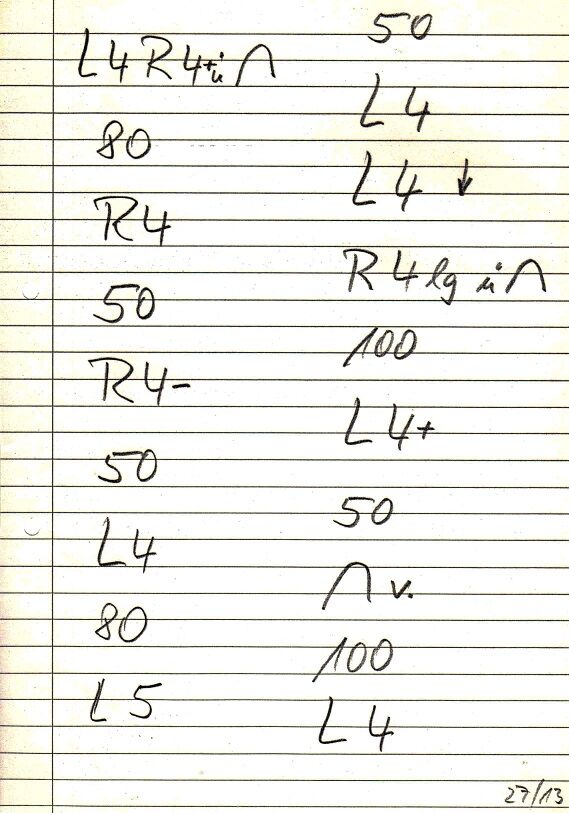 L4 R4+ü ∩
80
R4
50
R4-
50
L4
80
L5
50
L4
L4 ↓
R4 lg ü ∩
100
L4+
50
∩ v.
100
L4
27/13